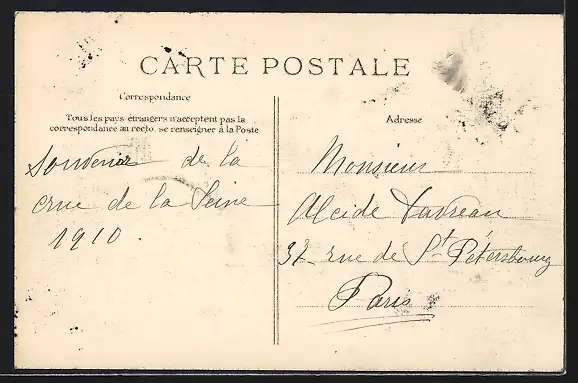 CARTE POSTALE
Correspondance
Tous les pays étrangers n'acceptent pas la
correspondance au recto. se renseigner à la Poste
Adresse
Souvenir de la
crue de la Seine
1910.
Monsieur
Alcide
rue de St Pétersbourg
Paris